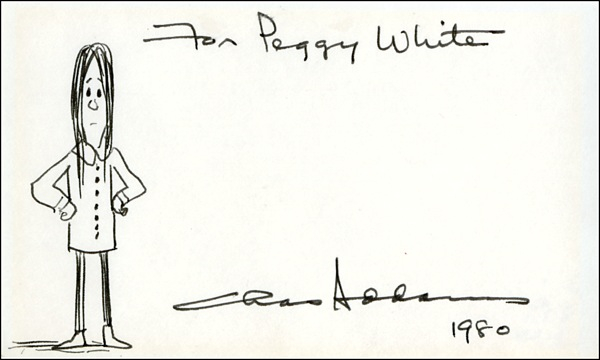 For Peggy White
Chas Addams
1980